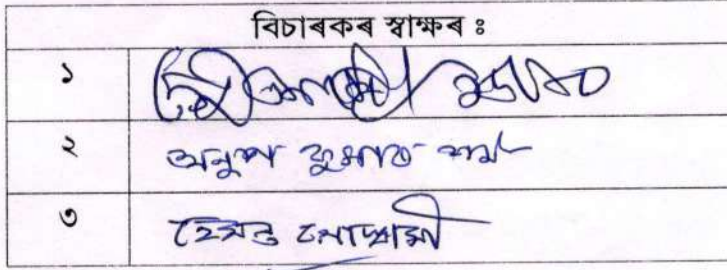 বিচাৰকৰ স্বাক্ষৰ ঃ
১
২ অনুপ কুমাৰ শৰ্মা
৩ হেমন্ত গোস্বামী